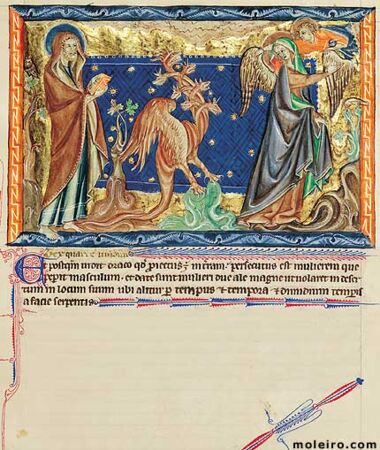 Et postqm vidit draco qd piectus est in terram. persecutus est mulierem que
peperit masculum. et date sunt mulieri due ale magne ut volaret in deser
tum in locum suum ubi alitur p tempus et tempora et dimidium tempis
a facie serpentis
moleiro.com